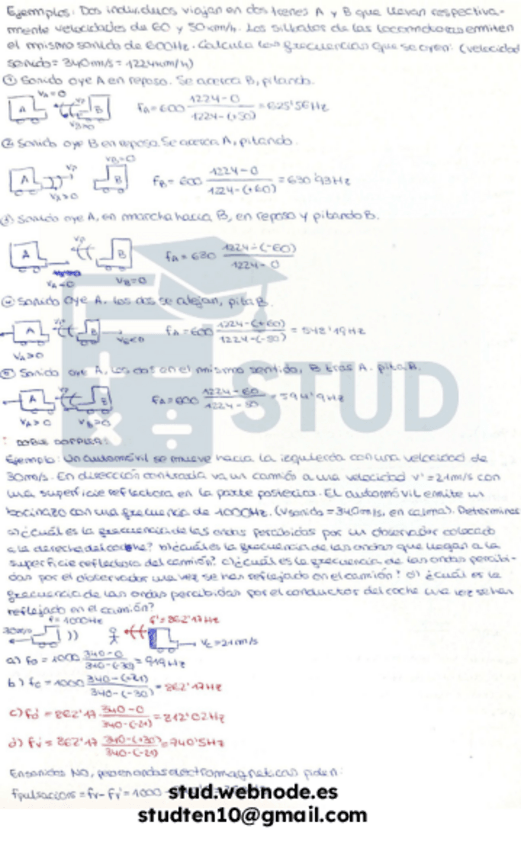 Ejemplos: Dos individuos viajan en dos trenes A y B que llevan respectiva-
mente velocidades de 60 y 50 km/h. Los silbatos de las locomotoras emiten
el mismo sonido de 600Hz. Calcula las frecuencias que se oyen: (velocidad
sonido = 340m/s = 1224km/h)
① Sonido oye A en reposo. Se acerca B, pitando.
VA=0
A B
fA = 600 1224-0 / 1224-(+50) = 625'56Hz
② Sonido oye B en reposo. Se acerca A, pitando.
VB=0
A B
VA>0
fB = 600 1224-0 / 1224-(+60) = 630'93Hz
③ Sonido oye A, en marcha hacia B, en reposo y pitando B.
A B
VA<0 VB=0
1224-(-60) / 1224-0
④ Sonido oye A. Los dos se alejan, pita B.
A B
VA>0 VB<0
fA = 600 1224-(+60) / 1224-(-50) = 548'19Hz
⑤ Sonido oye A, los dos en el mismo sentido, B tras A. pita B.
A B
VA>0 VB>0
fA = 600 1224-60 / 1224-50 = 594'9Hz
STUD
DOBLE DOPPLER:
Ejemplo: Un automóvil se mueve hacia la izquierda con una velocidad de
30m/s. En dirección contraria va un camión a una velocidad v'=21m/s con
una superficie reflectora en la parte posterior. El automóvil emite un
bocinazo con una frecuencia de 1000Hz. (Vsonido = 340m/s, en calma). Determines
a) ¿cuál es la frecuencia de las ondas percibidas por un observador colocado
a la derecha del coche? b) ¿cuál es la frecuencia de las ondas que llegan a la
superficie reflectora del camión? c) ¿cuál es la frecuencia de las ondas percibi-
das por el observador una vez se han reflejado en el camión? d) ¿cuál es la
frecuencia de las ondas percibidas por el conductor del coche una vez se han
reflejado en el camión?
30m/s f=1000Hz f'=862'17Hz
Vc=21m/s
a) fo = 1000 340-0 / 340-(-30) = 919Hz
b) fc = 1000 340-(+21) / 340-(-30) = 862'17Hz
c) fo' = 862'17 340-0 / 340-(-21) = 812'02Hz
d) fv' = 862'17 340-(+30) / 340-(-21) = 740'5Hz
En sonidos NO, pero en ondas electromagnéticas piden:
fpulsaciones = fv - fv' = 1000 -
stud.webnode.es
studten10@gmail.com